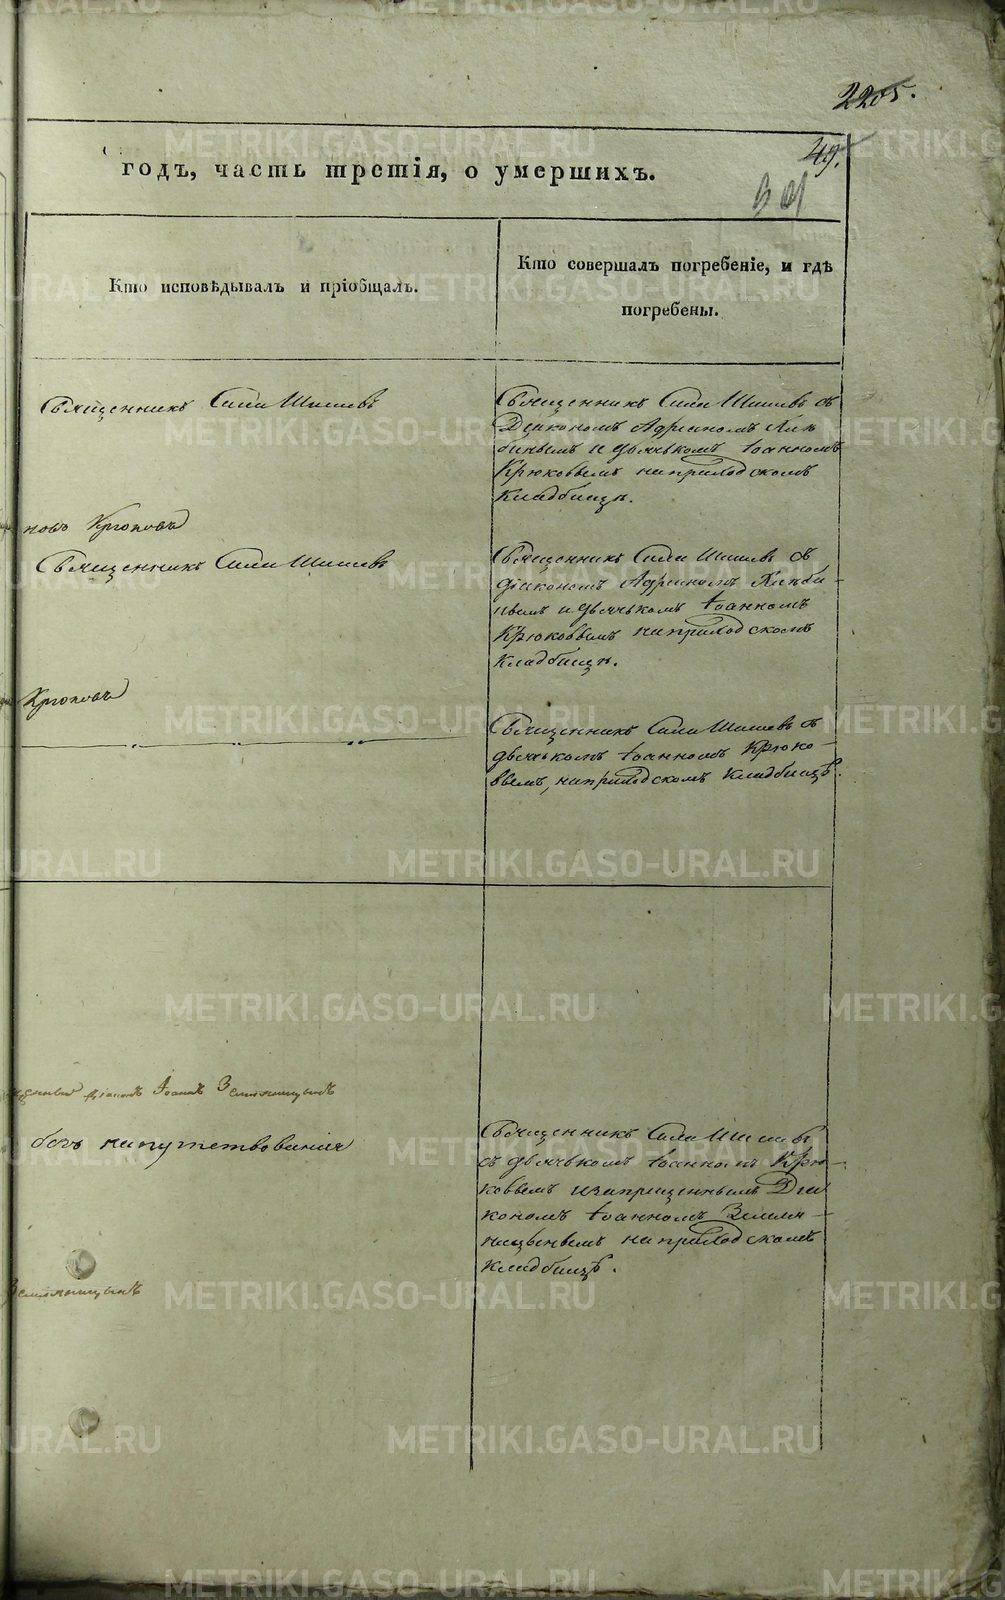 2205.
49.
годъ, часть третія, о умершихъ.
Кто исповѣдывалъ и пріобщалъ.
Кто совершалъ погребеніе, и гдѣ
погребены.
Священникъ Сила Шишевъ
Священникъ Сила Шишевъ съ
Діакономъ Адріаномъ
и дьячькомъ Іоанномъ
Крюковымъ на приходскомъ
Кладбищѣ.
Крюковъ
Священникъ Сила Шишевъ
Священникъ Сила Шишевъ съ
діакономъ Адріаномъ
и дьячькомъ Іоанномъ
Крюковымъ на приходскомъ
Кладбищѣ.
Крюковъ
Священникъ Сила Шишевъ съ
дьячькомъ Іоанномъ Крюко-
вымъ, на приходскомъ Кладбищѣ.
діаконъ Іоаннъ Земляницынъ
безъ напутствованія
Священникъ Сила Шишевъ
съ дьячькомъ Іоанномъ Крю-
ковымъ и запрещеннымъ Діа
кономъ Іоанномъ Земля-
ницынымъ на приходскомъ
Кладбищѣ.
Земляницынъ
METRIKI.GASO-URAL.RU